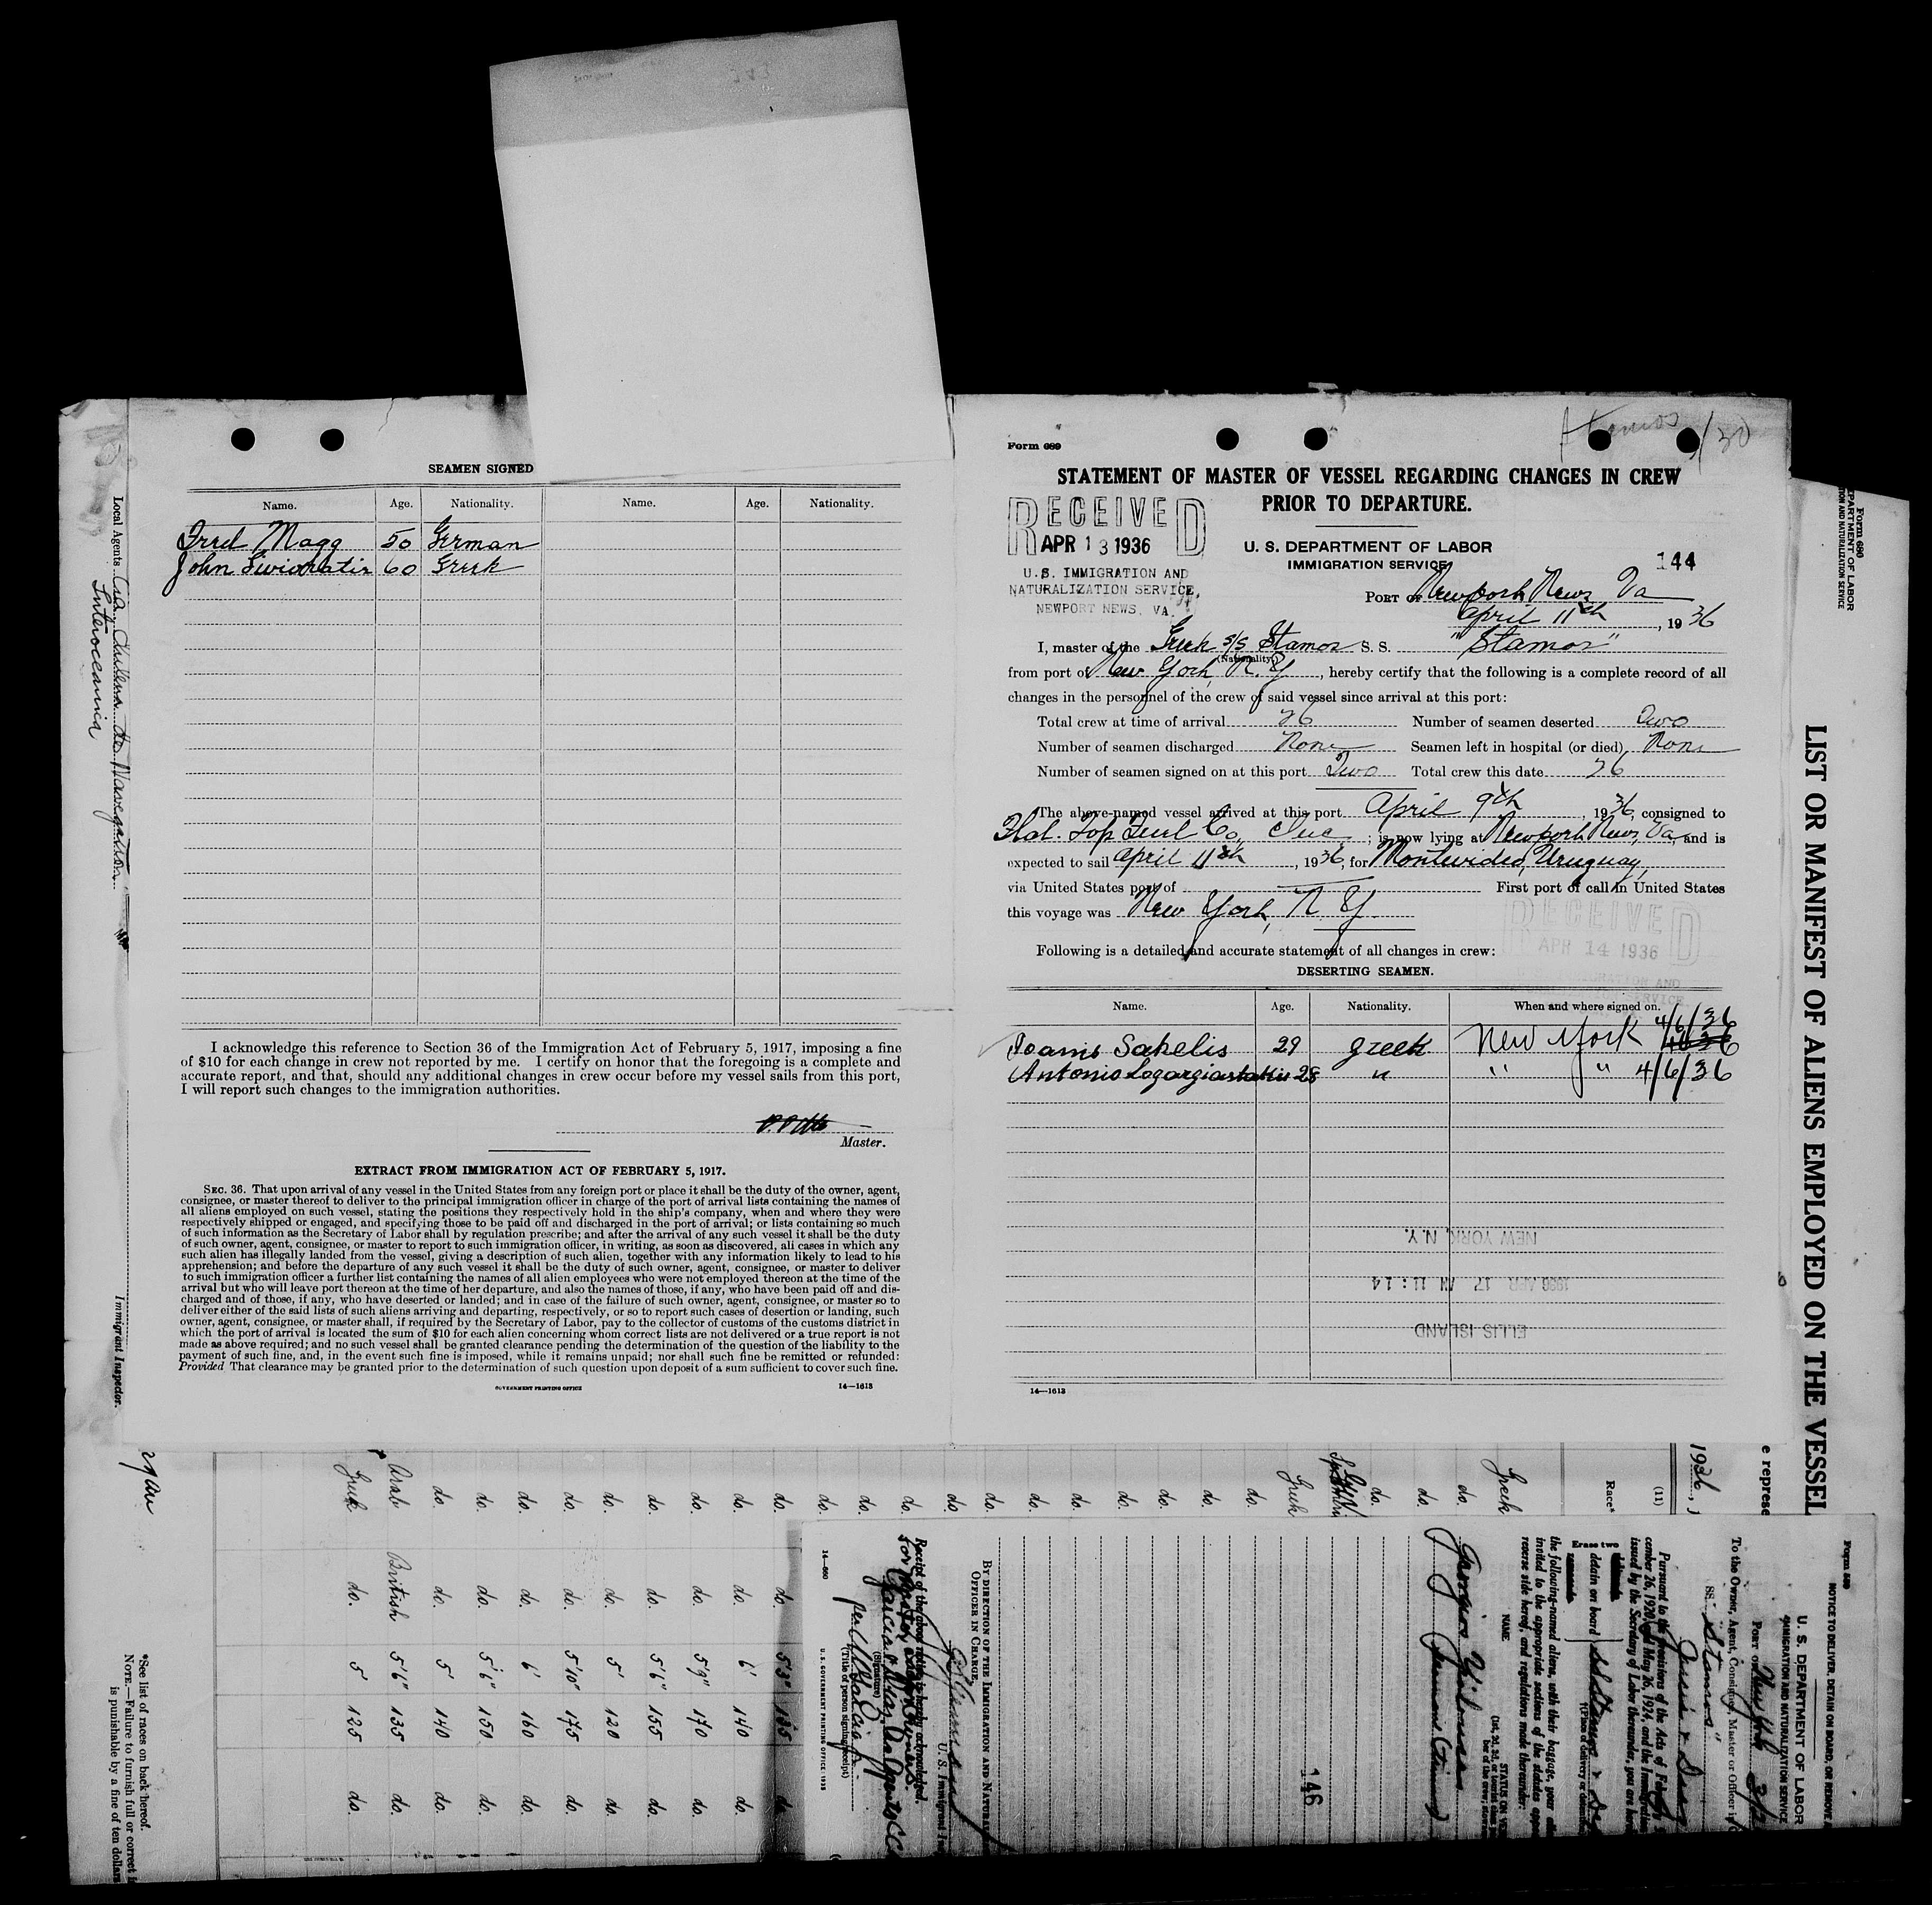 SEAMEN SIGNED
Name. Age. Nationality. Name. Age. Nationality.
Fred Magg 50 German
John 60 Greek
I acknowledge this reference to Section 36 of the Immigration Act of February 5, 1917, imposing a fine
of $10 for each change in crew not reported by me. I certify on honor that the foregoing is a complete and
accurate report, and that, should any additional changes in crew occur before my vessel sails from this port,
I will report such changes to the immigration authorities.
Master.
EXTRACT FROM IMMIGRATION ACT OF FEBRUARY 5, 1917.
SEC. 36. That upon arrival of any vessel in the United States from any foreign port or place it shall be the duty of the owner, agent,
consignee, or master thereof to deliver to the principal immigration officer in charge of the port of arrival lists containing the names of
all aliens employed on such vessel, stating the positions they respectively hold in the ship's company, when and where they were
respectively shipped or engaged, and specifying those to be paid off and discharged in the port of arrival; or lists containing so much
of such information as the Secretary of Labor shall by regulation prescribe; and after the arrival of any such vessel it shall be the duty
of such owner, agent, consignee, or master to report to such immigration officer, in writing, as soon as discovered, all cases in which any
such alien has illegally landed from the vessel, giving a description of such alien, together with any information likely to lead to his
apprehension; and before the departure of any such vessel it shall be the duty of such owner, agent, consignee, or master to deliver
to such immigration officer a further list containing the names of all alien employees who were not employed thereon at the time of the
arrival but who will leave port thereon at the time of her departure, and also the names of those, if any, who have been paid off and dis-
charged and of those, if any, who have deserted or landed; and in case of the failure of such owner, agent, consignee, or master so to
deliver either of the said lists of such aliens arriving and departing, respectively, or so to report such cases of desertion or landing, such
owner, agent, consignee, or master shall, if required by the Secretary of Labor, pay to the collector of customs of the customs district in
which the port of arrival is located the sum of $10 for each alien concerning whom correct lists are not delivered or a true report is not
made as above required; and no such vessel shall be granted clearance pending the determination of the question of the liability to the
payment of such fine, and, in the event such fine is imposed, while it remains unpaid; nor shall such fine be remitted or refunded:
Provided That clearance may be granted prior to the determination of such question upon deposit of a sum sufficient to cover such fine.
GOVERNMENT PRINTING OFFICE 14—1613
Local Agents Cia de Navegation
Interoceanica
Immigrant Inspector.
Stamos
Form 689
STATEMENT OF MASTER OF VESSEL REGARDING CHANGES IN CREW
PRIOR TO DEPARTURE.
RECEIVED
APR 13 1936
U.S. IMMIGRATION AND
NATURALIZATION SERVICE,
NEWPORT NEWS, VA.
U. S. DEPARTMENT OF LABOR
IMMIGRATION SERVICE
144
PORT OF Newport News Va
April 11th, 1936
I, master of the Greek s/s Stamos S. S. "Stamos"
(Nationality)
from port of New York, N. Y, hereby certify that the following is a complete record of all
changes in the personnel of the crew of said vessel since arrival at this port:
Total crew at time of arrival 26 Number of seamen deserted Two
Number of seamen discharged None Seamen left in hospital (or died) None
Number of seamen signed on at this port Two Total crew this date 26
The above-named vessel arrived at this port April 9th, 1936, consigned to
Flat Top Fuel Co, Inc; is now lying at Newport News, Va, and is
expected to sail April 11th, 1936, for Montevideo, Uruguay,
via United States port of First port of call in United States
this voyage was New York, N Y
Following is a detailed and accurate statement of all changes in crew:
RECEIVED
APR 14 1936
DESERTING SEAMEN.
Name. Age. Nationality. When and where signed on.
Ioanis Sakelis 29 greek New York 4/6/36
Antonio 28 " " " 4/6/36
NEW YORK, N.Y.
1936 APR 17 AM 11:14
ELLIS ISLAND
14—1613
Form 680
DEPARTMENT OF LABOR
LIST OR MANIFEST OF ALIENS EMPLOYED ON THE VESSEL
1936
(11)
Race*
Greek
do.
do.
do.
Greek
do.
do.
do.
do.
do.
do.
do.
do.
do.
do.
do.
do. do. 5'3" 165 do
do. 6' 140
do. 5'9" 170
do. 5'6" 155
do. 5' 120
do. do. 5'10" 175 do.
do. do. 6' 160 do.
do. do. 5'6" 150 do.
do. do. 5' 140 do.
Arab British 5'6" 135 do.
Greek do. 5 125 do.
*See list of races on back hereof.
NOTE.—Failure to furnish full or correct
is punishable by a fine of ten dollars
NOTICE TO DELIVER, DETAIN ON BOARD, OR REMOVE
U. S. DEPARTMENT OF LABOR
IMMIGRATION AND NATURALIZATION SERVICE
PORT OF New York
To the Owner, Agent, Consignee, Master or Officer
SS. "Stamos"
Pursuant to the provisions of the Acts of
cember 26, 1920, and May 26, 1924, and the Immigration
issued by the Secretary of Labor thereunder, you are
Erase two
detain on board
the following-named aliens, with their baggage,
invited to the appropriate sections of the statutes
reverse side hereof, and regulations made thereunder:
NAME STATUS ON
146
BY DIRECTION OF THE IMMIGRATION AND
OFFICER IN CHARGE
U. S. Immigrant
Receipt of the above notice is hereby acknowledged.
(Signature)
(Title of person signing receipt)
U. S. GOVERNMENT PRINTING OFFICE